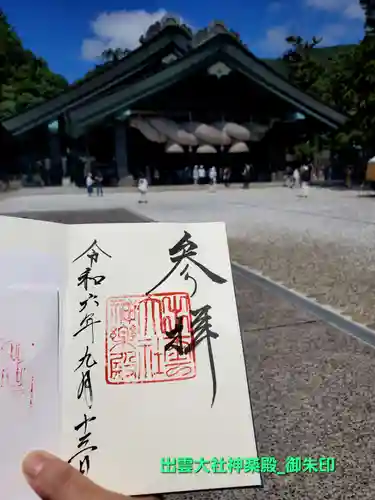 参拝
出雲大社神楽殿
令和六年九月十三日
出雲大社神楽殿_御朱印